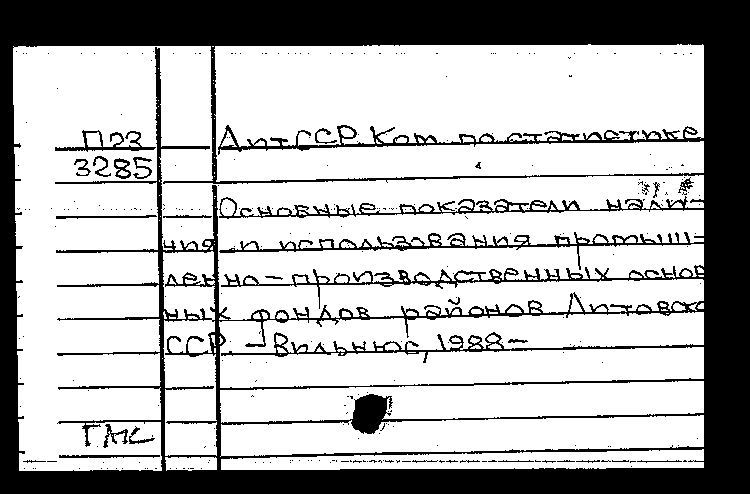 П23 ЛитССР. Ком. по статистике
3285
Основные показатели нали-
чия и использования промыш-
ленно-производственных основ
ных фондов районов Литовско
ССР. - Вильнюс, 1988-